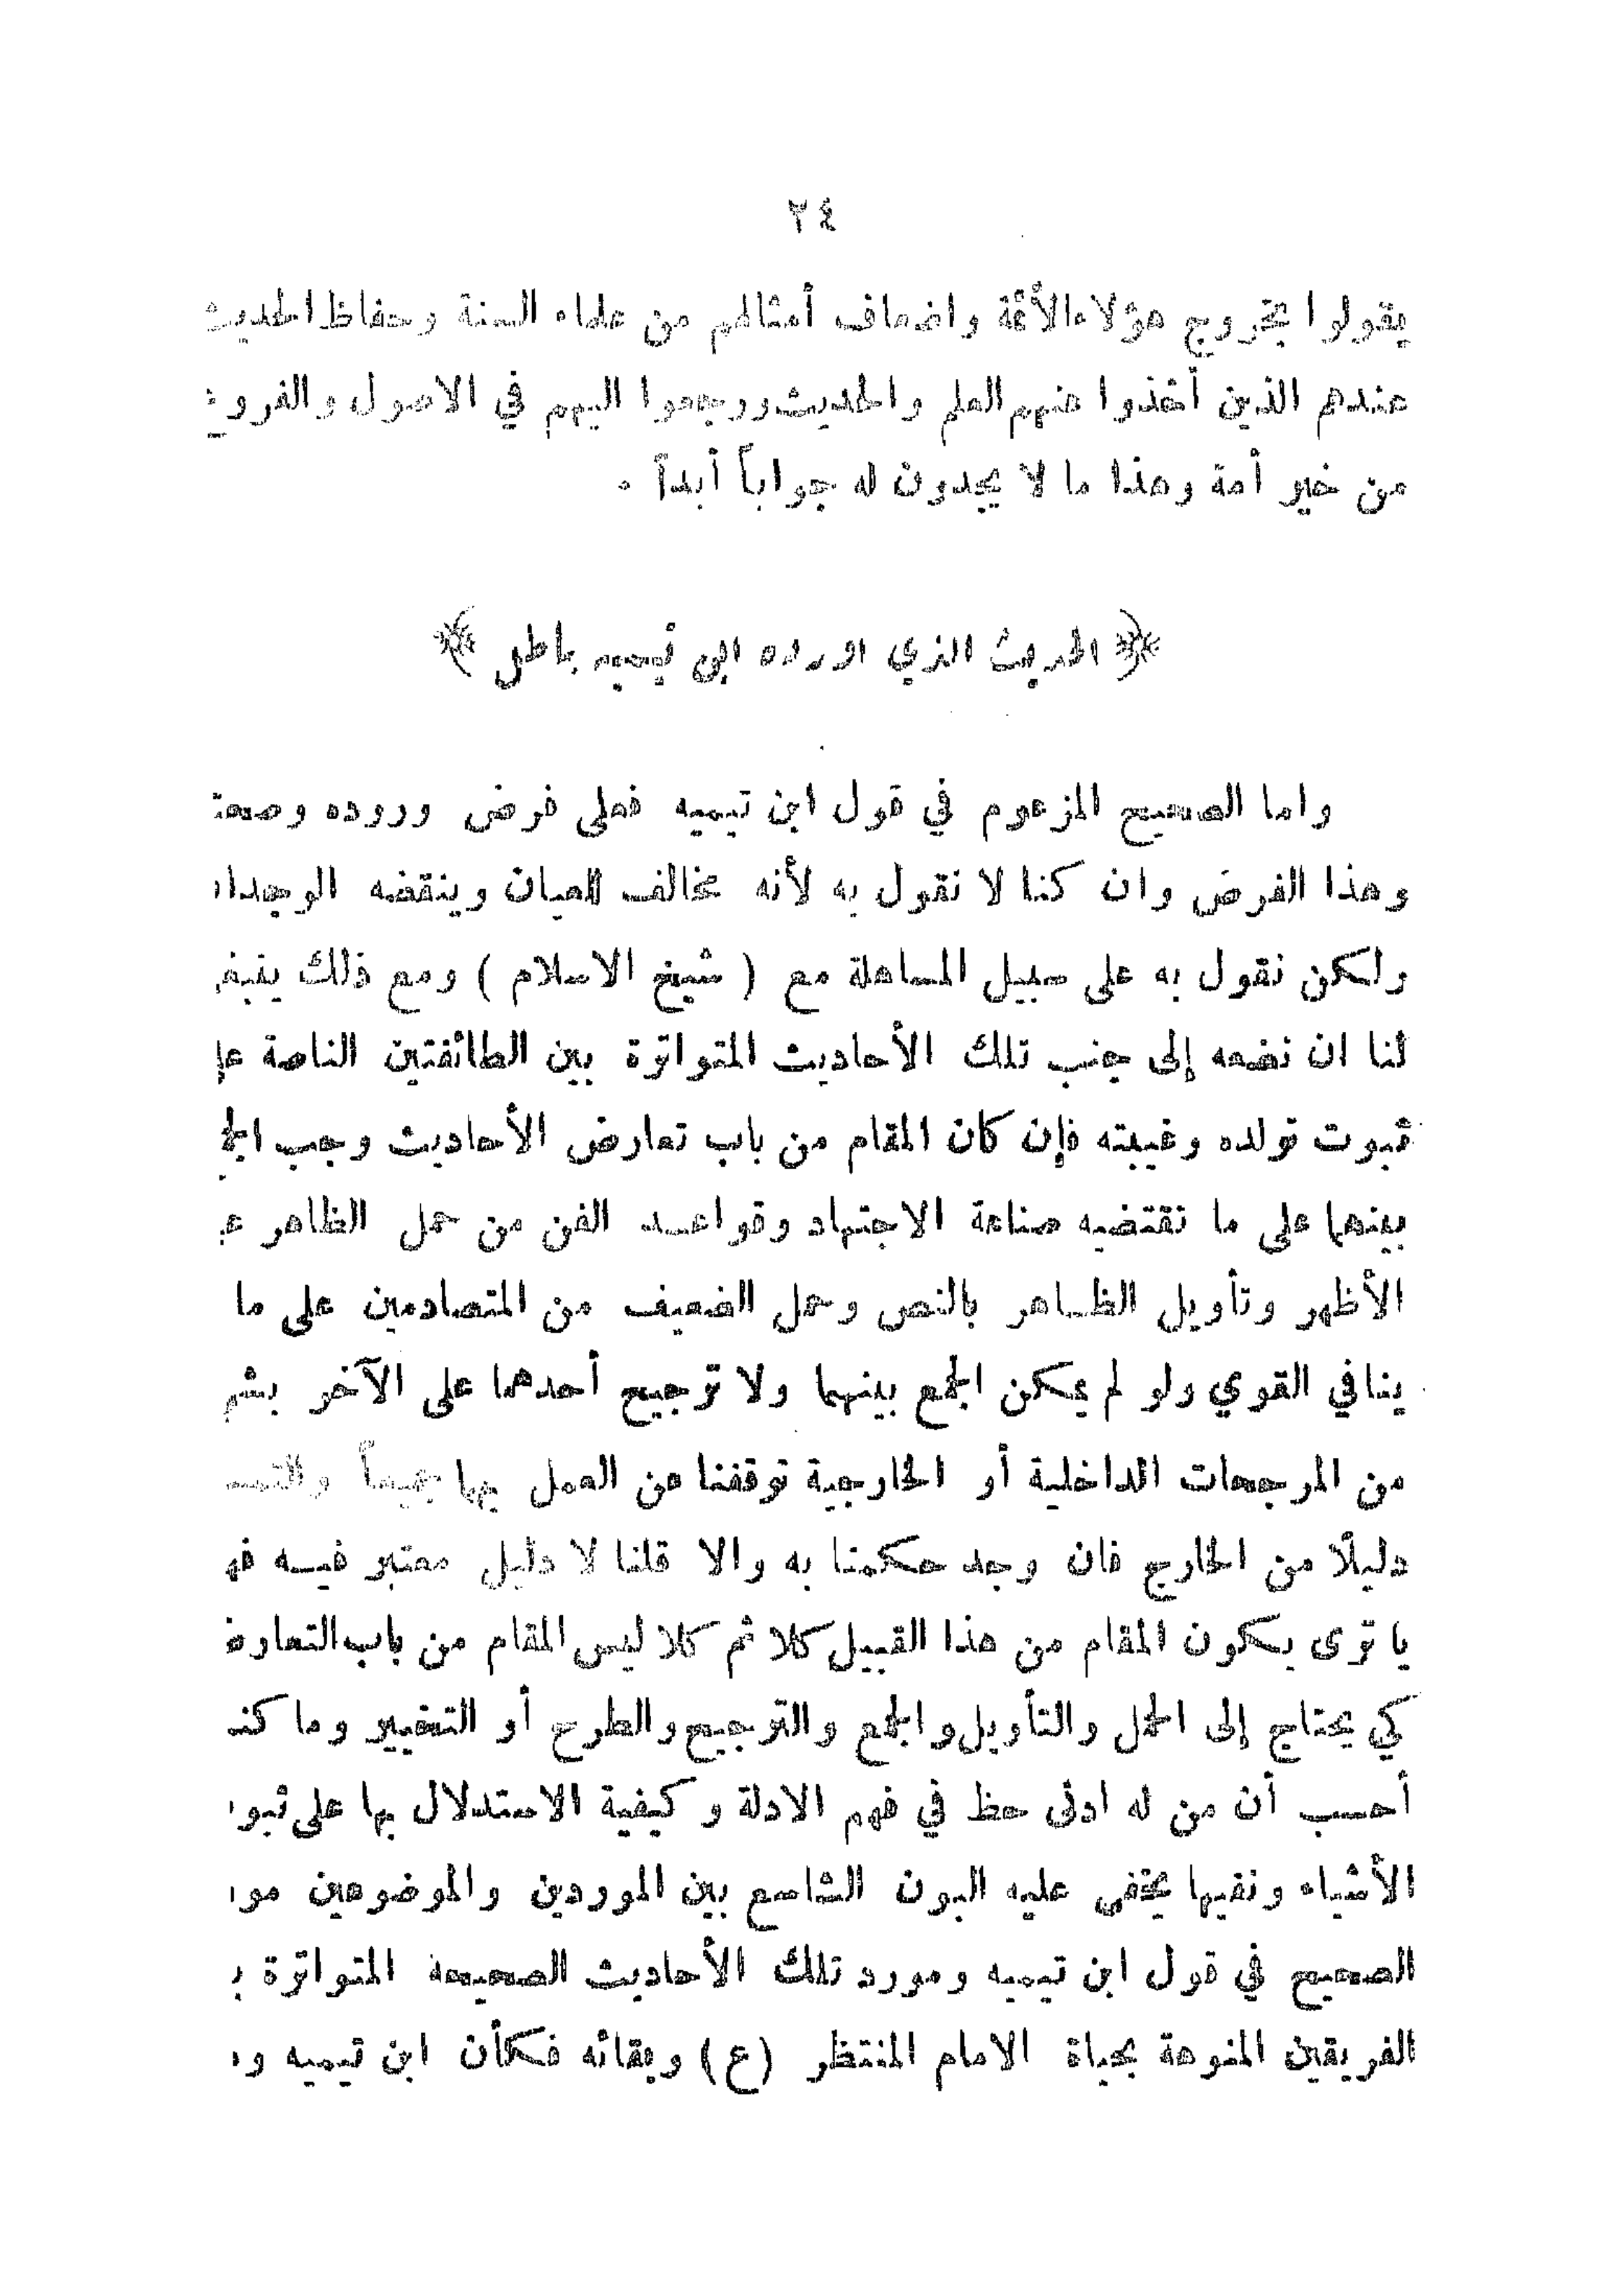 ٢٤
يقولوا بخروج هؤلاء الأئمة واضعاف أمثالهم من علماء السنة وحفاظ الحديث
عندهم الذين أخذوا عنهم العلم والحديث ورجعوا اليهم في الاصول والفروع
من خير أمة وهذا ما لا يجدون له جواباً أبداً .
﴿ الحديث الذي اورده ابن تيميه باطل ﴾
واما الصحيح المزعوم في قول ابن تيميه فعلى فرض وروده وصحته
وهذا الفرض وان كنا لا نقول به لأنه مخالف للعيان وينقضه الوجدا
ولكن نقول به على سبيل المساهلة مع ( شيخ الاسلام ) ومع ذلك ينبغ
لنا ان نضعه إلى جنب تلك الأحاديث المتواترة بين الطائفتين الناصة ع
ثبوت تولده وغيبته فإن كان المقام من باب تعارض الأحاديث وجب الج
بينهما على ما تقتضيه صناعة الاجتهاد وقواعد الفن من حمل الظاهر ع
الأظهر وتأويل الظاهر بالنص وحمل الضعيف من المتصادمين على ما
ينافي القوي ولو لم يمكن الجمع بينهما ولا ترجيح أحدهما على الآخر بش
من المرجحات الداخلية أو الخارجية توقفنا عن العمل بهما جميعاً والتمس
دليلًا من الخارج فان وجد حكمنا به والا قلنا لا دليل معتبر فيه فه
يا ترى يكون المقام من هذا القبيل كلا ثم كلا ليس المقام من باب التعارض
كي يحتاج إلى الحمل والتأويل والجمع والترجيح والطرح أو التخيير وما كنـ
أحسب أن من له ادنى حظ في فهم الادلة وكيفية الاستدلال بها على ثبو
الأشياء ونفيها يخفى عليه البون الشاسع بين الموردين والموضوعين مو
الصحيح في قول ابن تيميه ومورد تلك الأحاديث الصحيحة المتواترة ب
الفريقين المنوهة بحياة الامام المنتظر (ع) وبقائه فكأن ابن تيميه و